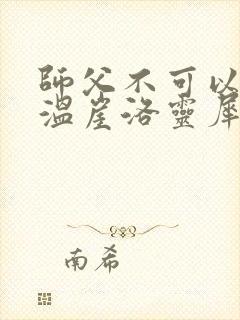 師父不可以
溫崖洛靈犀
南希